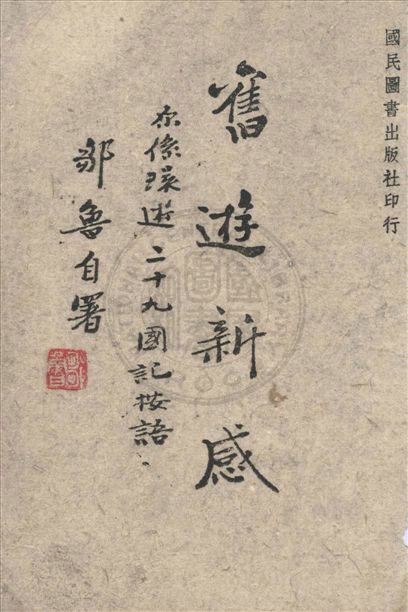 國民圖書出版社印行
舊遊新感
亦係環遊二十九國記按語
鄒魯自署